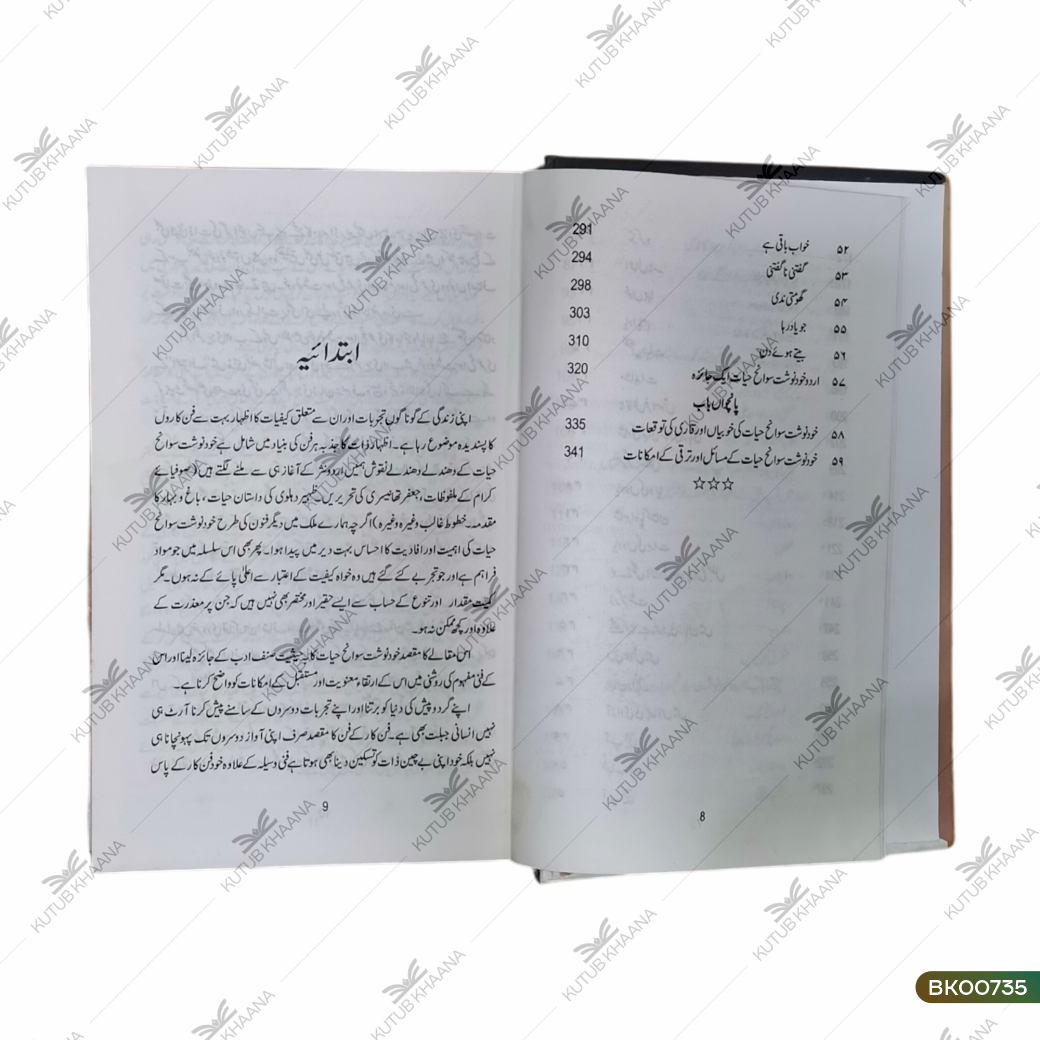 ۵۲ خواب باقی ہے 291
۵۳ گفتنی ناگفتنی 294
۵۴ گھومتی ندی 298
۵۵ جو یاد رہا 303
۵۶ بیتے ہوئے دن 310
۵۷ اردو خودنوشت سوانح حیات ایک جائزہ 320
پانچواں باب
۵۸ خودنوشت سوانح حیات کی خوبیاں اور قاری کی توقعات 335
۵۹ خودنوشت سوانح حیات کے مسائل اور ترقی کے امکانات 341
☆☆☆
8
ابتدائیہ
اپنی زندگی کے گوناگوں تجربات اور ان سے متعلق کیفیات کا اظہار بہت سے فن کاروں
کا پسندیدہ موضوع رہا ہے۔ اظہار ذات کا جذبہ ہر فن کی بنیاد میں شامل ہے خودنوشت سوانح
حیات کے دھندلے دھندلے نقوش ہمیں اردو نثر کے آغاز ہی سے ملنے لگتے ہیں (صوفیائے
کرام کے ملفوظات، جعفر تھانیسری کی تحریریں۔ ظہیر دہلوی کی داستان حیات، باغ و بہار کا
مقدمہ۔ خطوط غالب وغیرہ وغیرہ) اگرچہ ہمارے ملک میں دیگر فنون کی طرح خودنوشت سوانح
حیات کی اہمیت اور افادیت کا احساس بہت دیر میں پیدا ہوا۔ پھر بھی اس سلسلہ میں جو مواد
فراہم ہے اور جو تجربے کئے گئے ہیں وہ خواہ کیفیت کے اعتبار سے اعلیٰ پائے کے نہ ہوں۔ مگر
کمیت مقدار اور تنوع کے حساب سے ایسے حقیر اور مختصر بھی نہیں ہیں کہ جن پر معذرت کے
علاوہ اور کچھ ممکن نہ ہو۔
اس مقالے کا مقصد خودنوشت سوانح حیات کا بہ حیثیت صنف ادب کے جائزہ لینا اور اس
کے فنی مفہوم کی روشنی میں اس کے ارتقاء، معنویت اور مستقبل کے امکانات کو واضح کرنا ہے۔
اپنے گرد و پیش کی دنیا کو برتنا اور اپنے تجربات دوسروں کے سامنے پیش کرنا آرٹ ہی
نہیں انسانی جبلت بھی ہے۔ فن کار کے فن کا مقصد صرف اپنی آواز دوسروں تک پہونچانا ہی
نہیں بلکہ خود اپنی بے چین ذات کو تسکین دینا بھی ہوتا ہے فنی وسیلہ کے علاوہ خود فن کار کے پاس
9
KUTUB KHAANA
BK00735